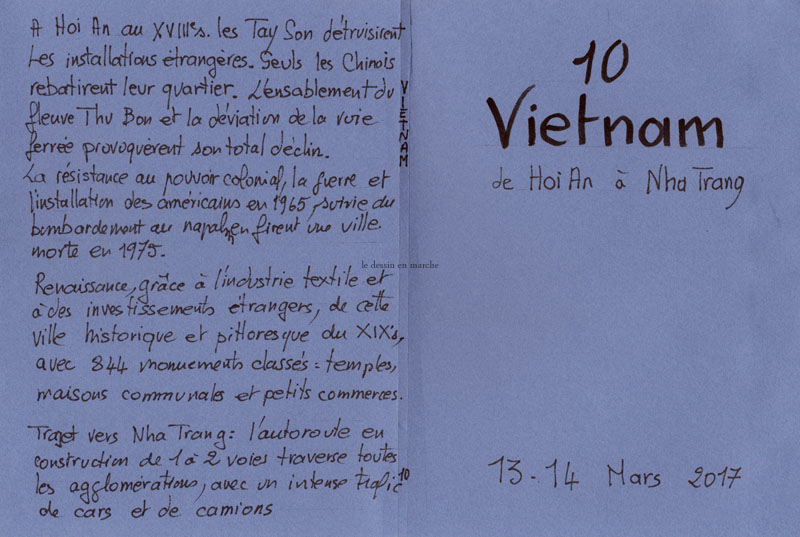 A Hoi An au XVIIIes. les Tay Son détruisirent
les installations étrangères. Seuls les Chinois
rebatirent leur quartier. L'ensablement du
fleuve Thu Bon et la déviation de la voie
ferrée provoquèrent son total déclin.
La résistance au pouvoir colonial, la guerre et
l'installation des américains en 1965, suivie du
bombardement au napalm en firent une ville
morte en 1975.
Renaissance, grâce à l'industrie textile et
à des investissements étrangers, de cette
ville historique et pittoresque du XIXes,
avec 844 monuements classés : temples,
maisons communales et petits commerces.
Trajet vers Nha Trang : l'autoroute en
construction de 1 à 2 voies traverse toutes
les agglomérations, avec un intense trafic
de cars et de camions
VIETNAM
10
le dessin en marche
10
Vietnam
de Hoi An à Nha Trang
13-14 Mars 2017